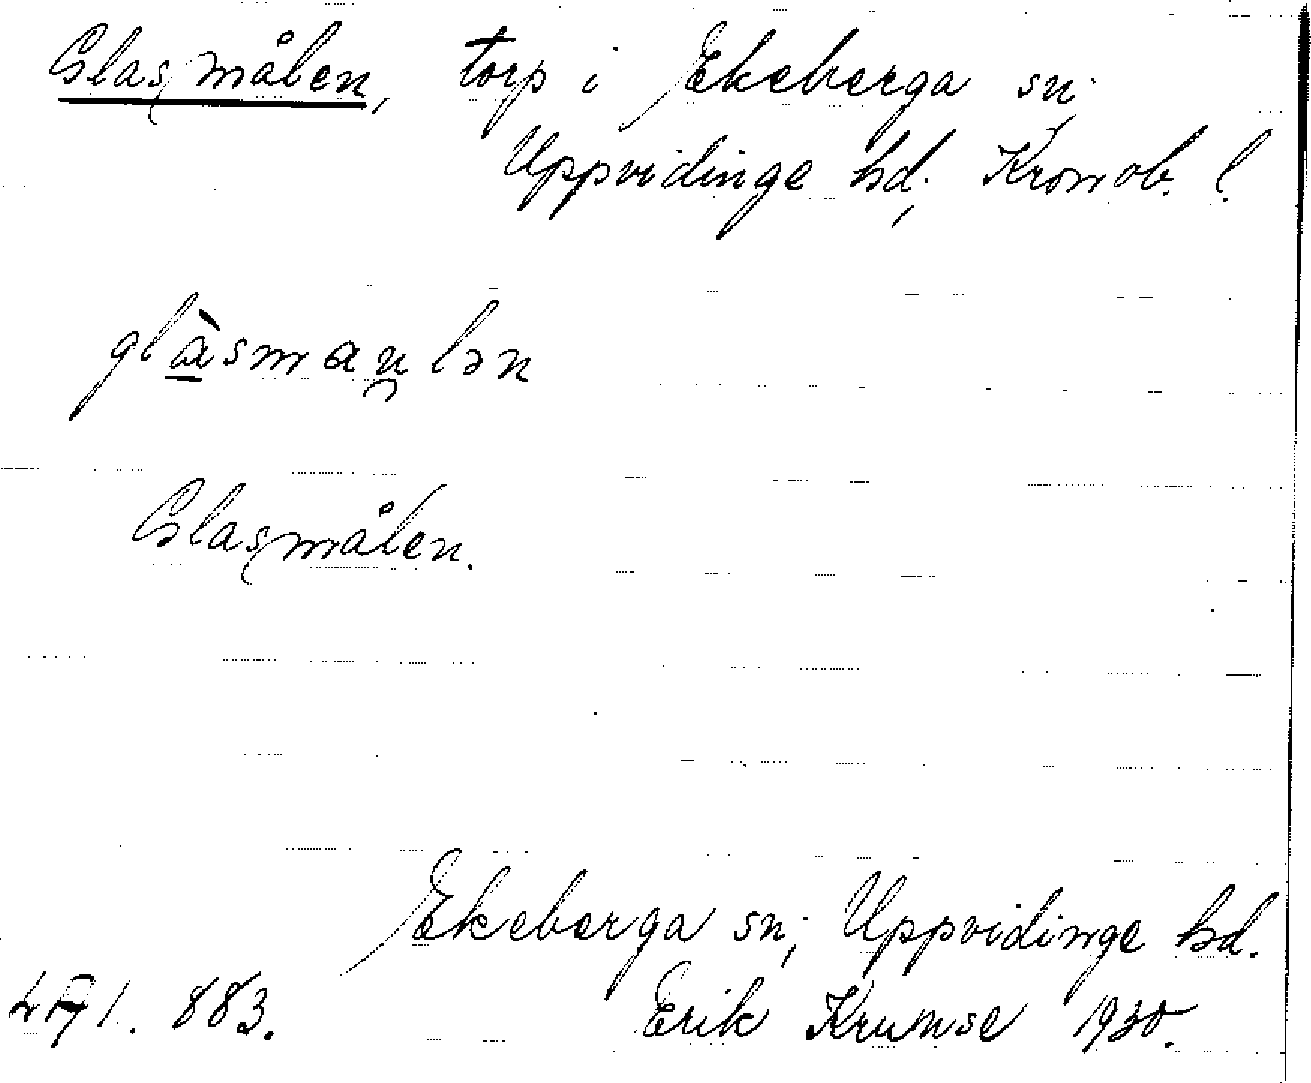 Glasmålen, torp i Ekeberga sn;
Uppvidinge hd; Kronob. l.
glàsmau̯lən
Glasmålen.
Ekeberga sn; Uppvidinge hd.
Erik Krumse 1930.
883.